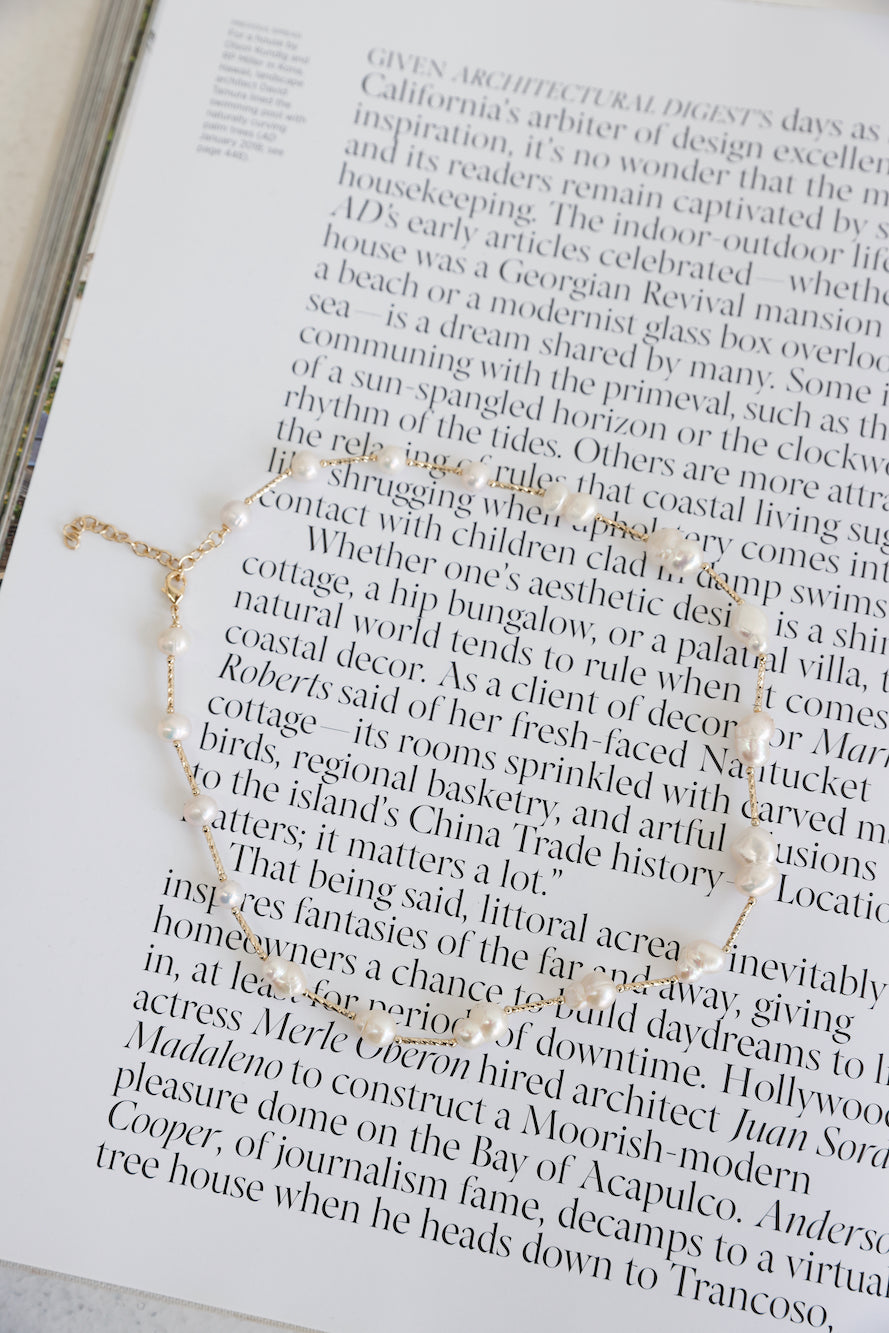 For a house by
Olson Kundig and
Bill Miller in Kona,
Hawaii, landscape
architect David
Tamura lined the
swimming pool with
naturally curving
palm trees (AD
January 2018, see
page 448).
GIVEN ARCHITECTURAL DIGEST'S days as
California's arbiter of design excellen
inspiration, it's no wonder that the m
and its readers remain captivated by s
housekeeping. The indoor-outdoor life
AD's early articles celebrated—whethe
house was a Georgian Revival mansion
a beach or a modernist glass box overloo
sea—is a dream shared by many. Some i
communing with the primeval, such as th
of a sun-spangled horizon or the clockw
rhythm of the tides. Others are more attra
the relaxing of rules that coastal living sug
like shrugging when upholstery comes int
contact with children clad in damp swims
Whether one's aesthetic desire is a shin
cottage, a hip bungalow, or a palatial villa, t
natural world tends to rule when it comes
coastal decor. As a client of decorator Mari
Roberts said of her fresh-faced Nantucket
cottage—its rooms sprinkled with carved m
birds, regional basketry, and artful allusions
to the island's China Trade history—"Locatio
matters; it matters a lot."
That being said, littoral acreage inevitably
inspires fantasies of the far and away, giving
homeowners a chance to build daydreams to li
in, at least for periods of downtime. Hollywood
actress Merle Oberon hired architect Juan Sord
Madaleno to construct a Moorish-modern
pleasure dome on the Bay of Acapulco. Anderso
Cooper, of journalism fame, decamps to a virtual
tree house when he heads down to Trancoso,